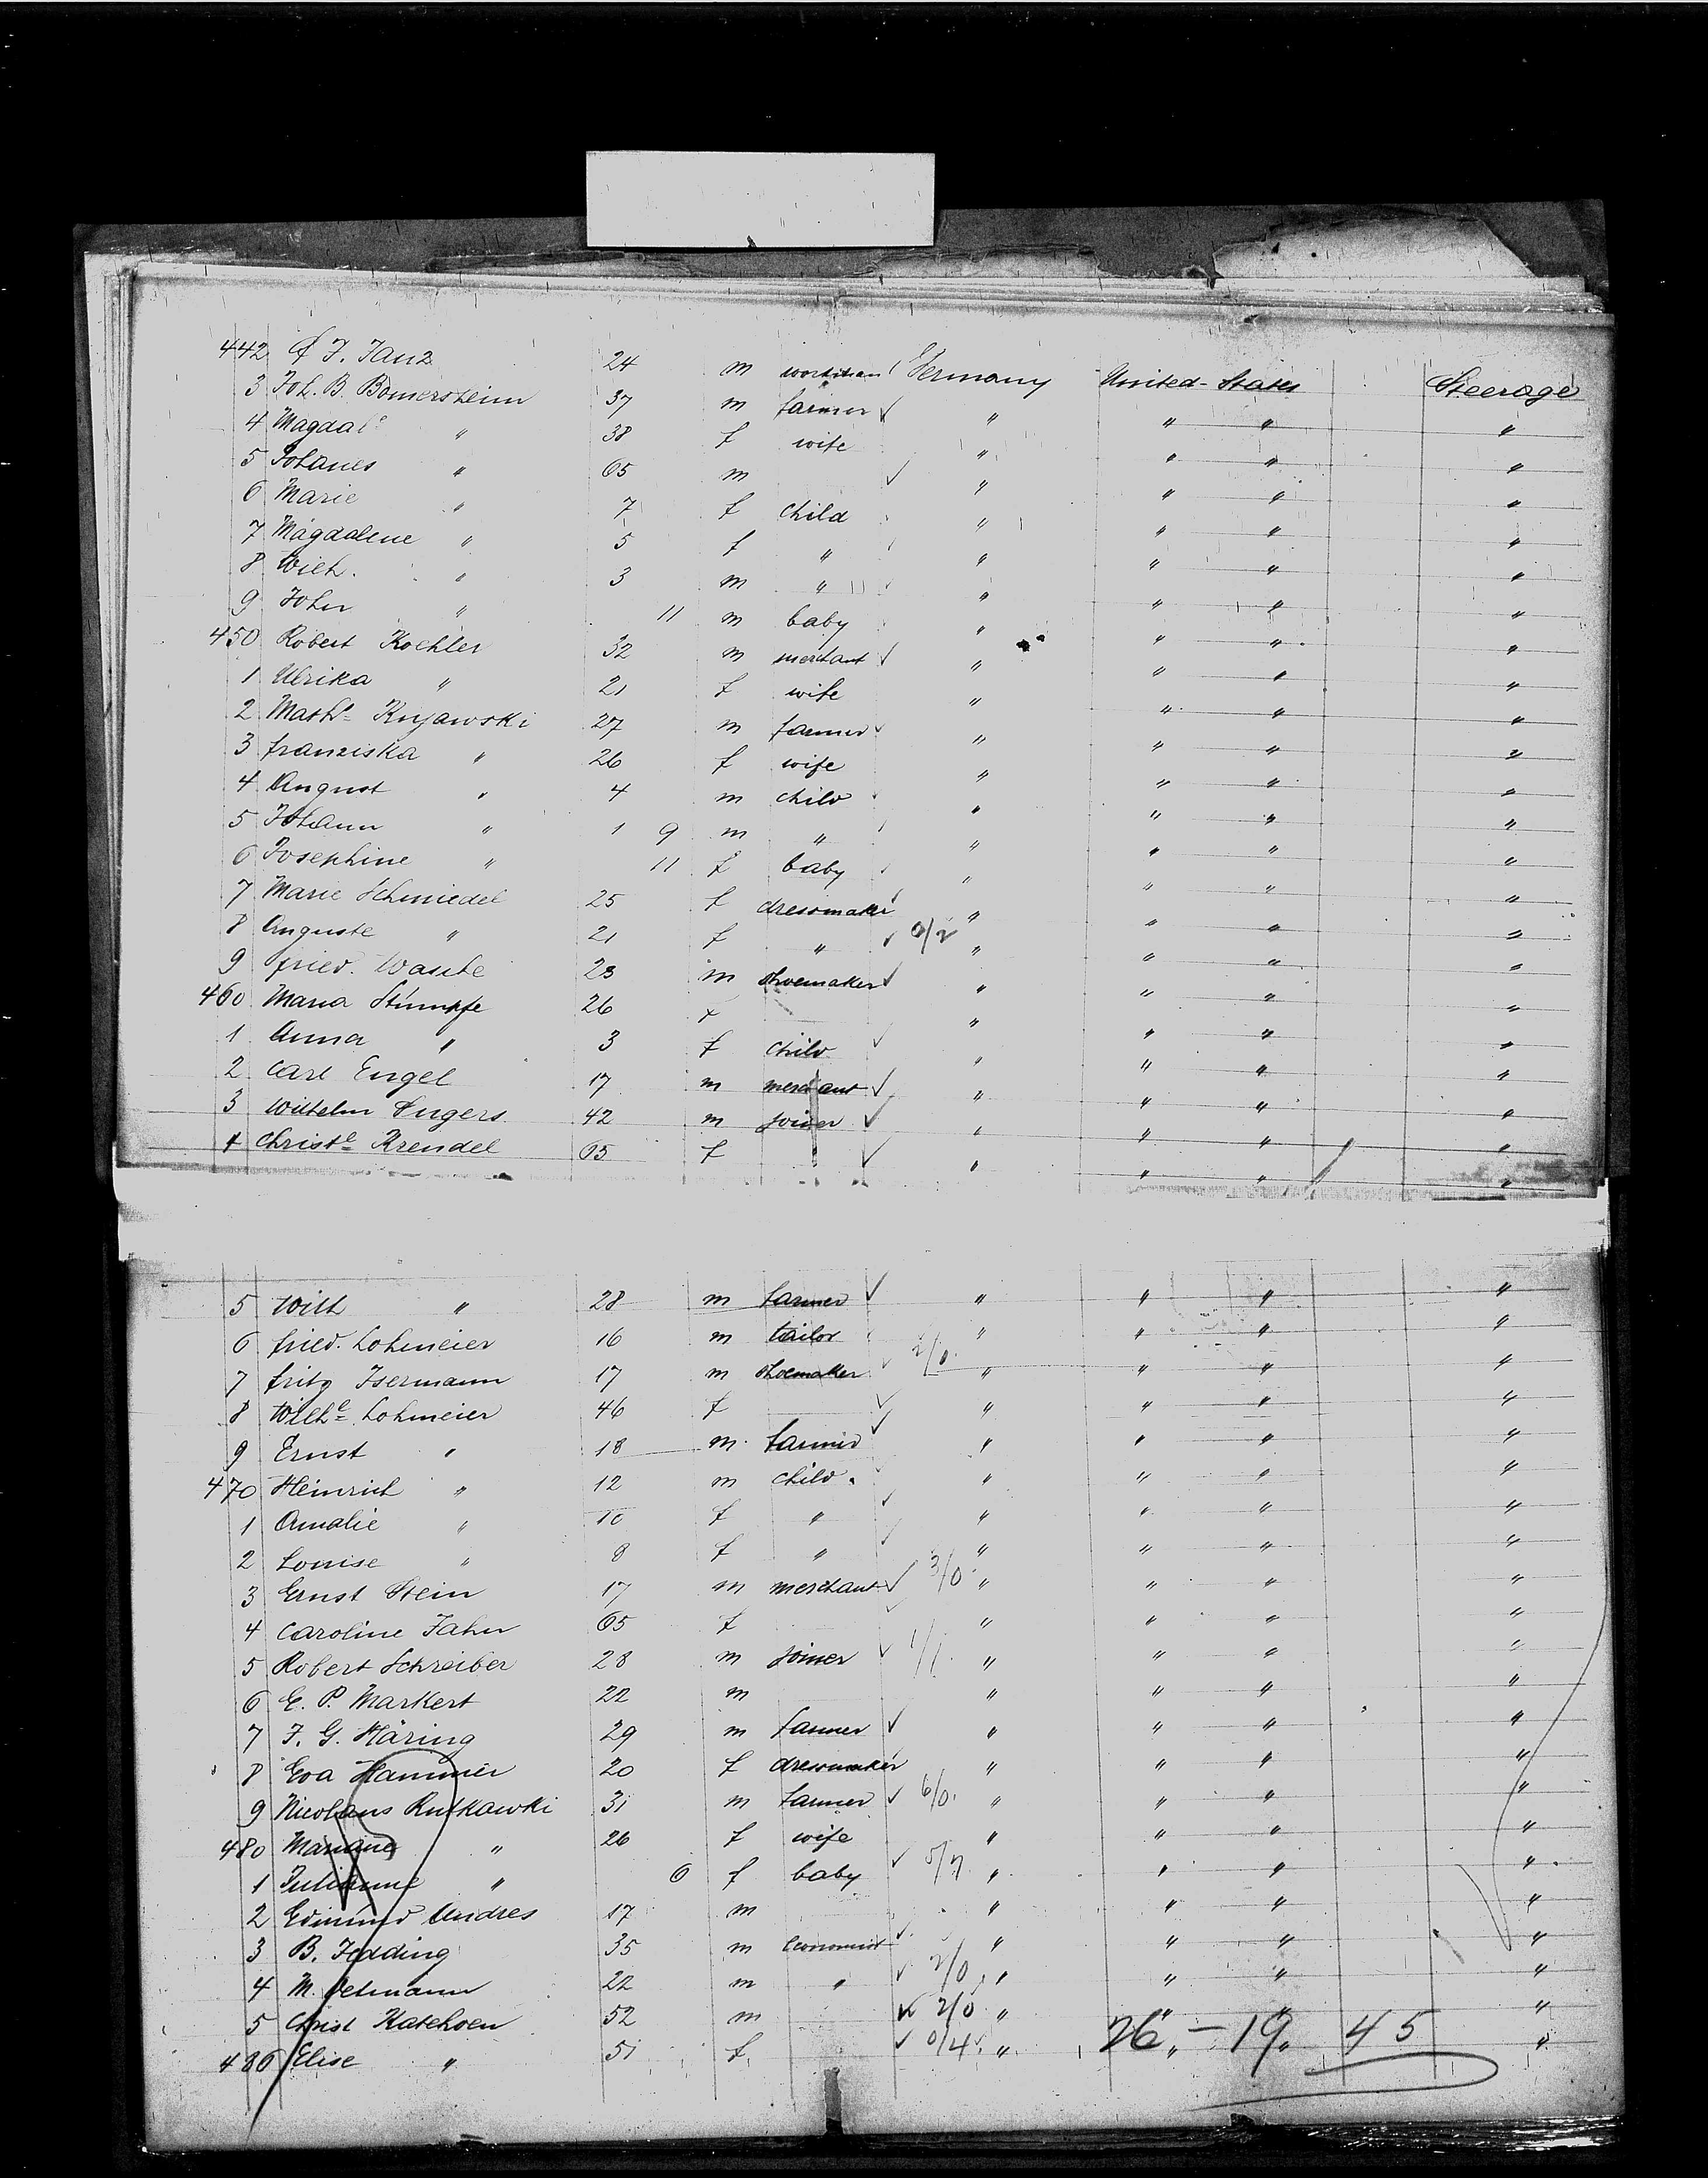 442 J. Janz 24 m workman Germany United-States Steerage
3 Joh. B. Bomersheim 37 m farmer ✓ " " " "
4 Magdal. " 38 f wife " " " "
5 Johanes " 65 m ✓ " " " "
6 Marie " 7 f child " " " "
7 Magdalene " 5 f " " " " "
8 Wilh. " 3 m " " " " "
9 John " 11 m baby " " " "
450 Robert Koehler 32 m merchant ✓ " " " "
1 Ulrika " 21 f wife " " " "
2 Math. Kujawski 27 m farmer " " " "
3 franziska " 26 f wife " " " "
4 August " 4 m child " " " "
5 Johann " 1 9 m " " " " "
6 Josephine " 11 f baby " " " "
7 Marie Schmiedel 25 f dressmaker " " " "
8 Auguste " 21 f " ✓ 0/2 " " " "
9 fried. Wasche 23 m shoemaker ✓ " " " "
460 Maria Stumpfe 26 f " " " "
1 Anna " 3 f child ✓ " " " "
2 Carl Engel 17 m merchant ✓ " " " "
3 Wilhelm Engers 42 m joiner ✓ " " " "
4 Christe Krendel 65 f ✓ " " " "
5 Wilh " 28 m farmer ✓ " " " "
6 fried. Lohmeier 16 m tailor " " " "
7 fritz Isermann 17 m shoemaker ✓ 2/0. " " " "
8 Wilhe Lohmeier 46 f ✓ " " " "
9 Ernst " 18 m farmer ✓ " " " "
470 Heinrich " 12 m child " " " "
1 Amalie " 10 f " ✓ " " " "
2 Louise " 8 f " ✓ " " " "
3 Ernst Stein 17 m merchant ✓ 3/0 " " " "
4 Caroline Jahn 65 f " " " "
5 Robert Schreiber 28 m joiner ✓ 1/1. " " " "
6 E. P. Markert 22 m " " " "
7 J. G. Häring 29 m farmer ✓ " " " "
8 Eva Hammer 20 f dressmaker " " " "
9 Nicolaus Rutkawki 31 m farmer ✓ 6/0. " " " "
480 Marianne " 26 f wife " " " "
1 Julianne " 6 f baby ✓ 5/7. " " " "
2 Edmund Andres 17 m " " " "
3 B. Jedding 35 m economist ✓ " " " "
4 M. Oetmann 22 m " ✓ 2/0 " " " "
5 Christ Katehoen 52 m ✓ 2/0 " " " "
486 Elise " 51 f. ✓ 0/4 " 26 " - 19 " 45 "